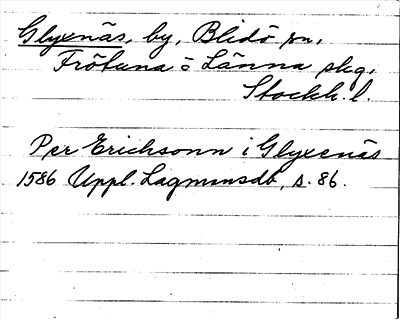 Glyxnäs, by, Blidö sn,
Frötuna o Länna skg,
Stockh. l.
Per Erichsonn i Glyxenäs
1586 Uppl. Lagmansdb, s. 86.